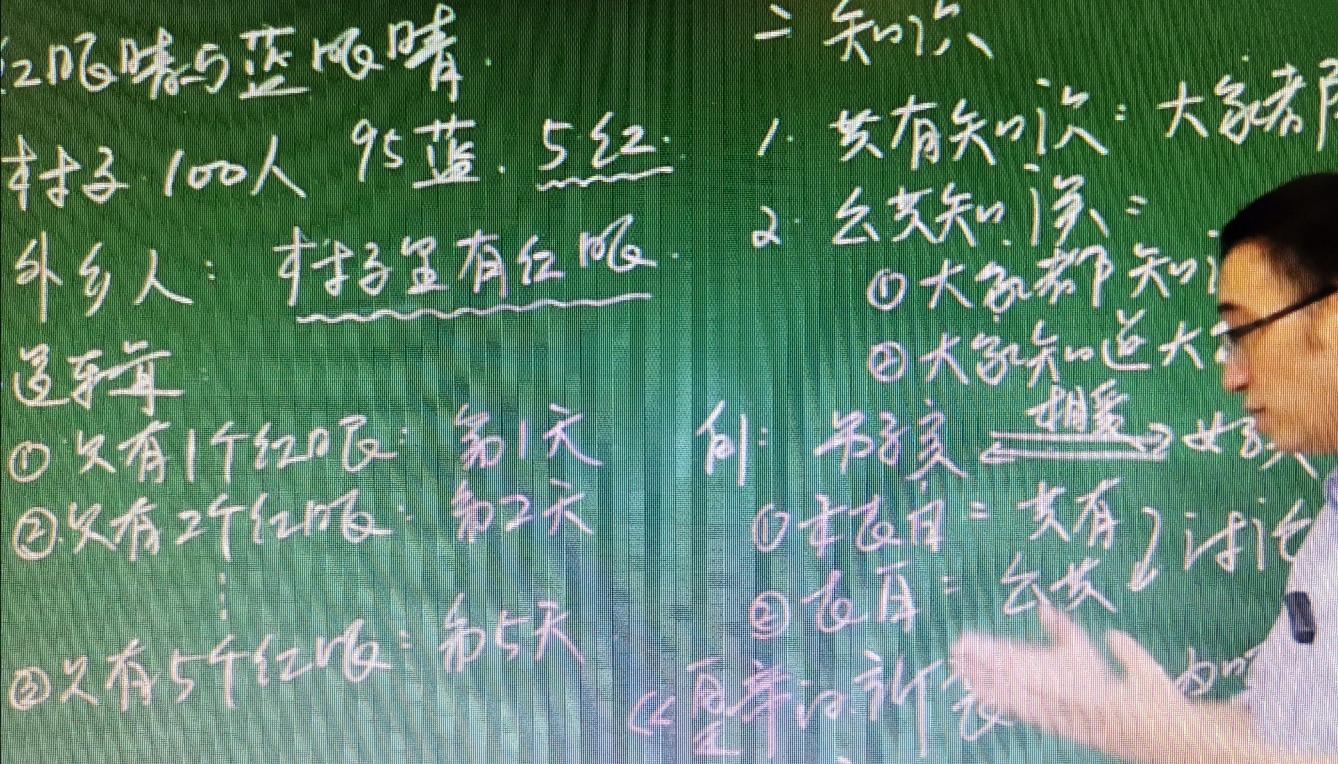 红眼睛与蓝眼睛.
村子 100人 95蓝. 5红.
外乡人: 村子里有红眼.
逻辑
①只有1个红眼: 第1天
②只有2个红眼: 第2天
⋮
⑤只有5个红眼: 第5天
二 知识
1. 共有知识: 大家都
2. 公共知识:
①大家都知
②大家知道大
例: 男孩 相爱 女孩
①未表白: 共有
②表白: 公共
讨论
《皇帝的新衣